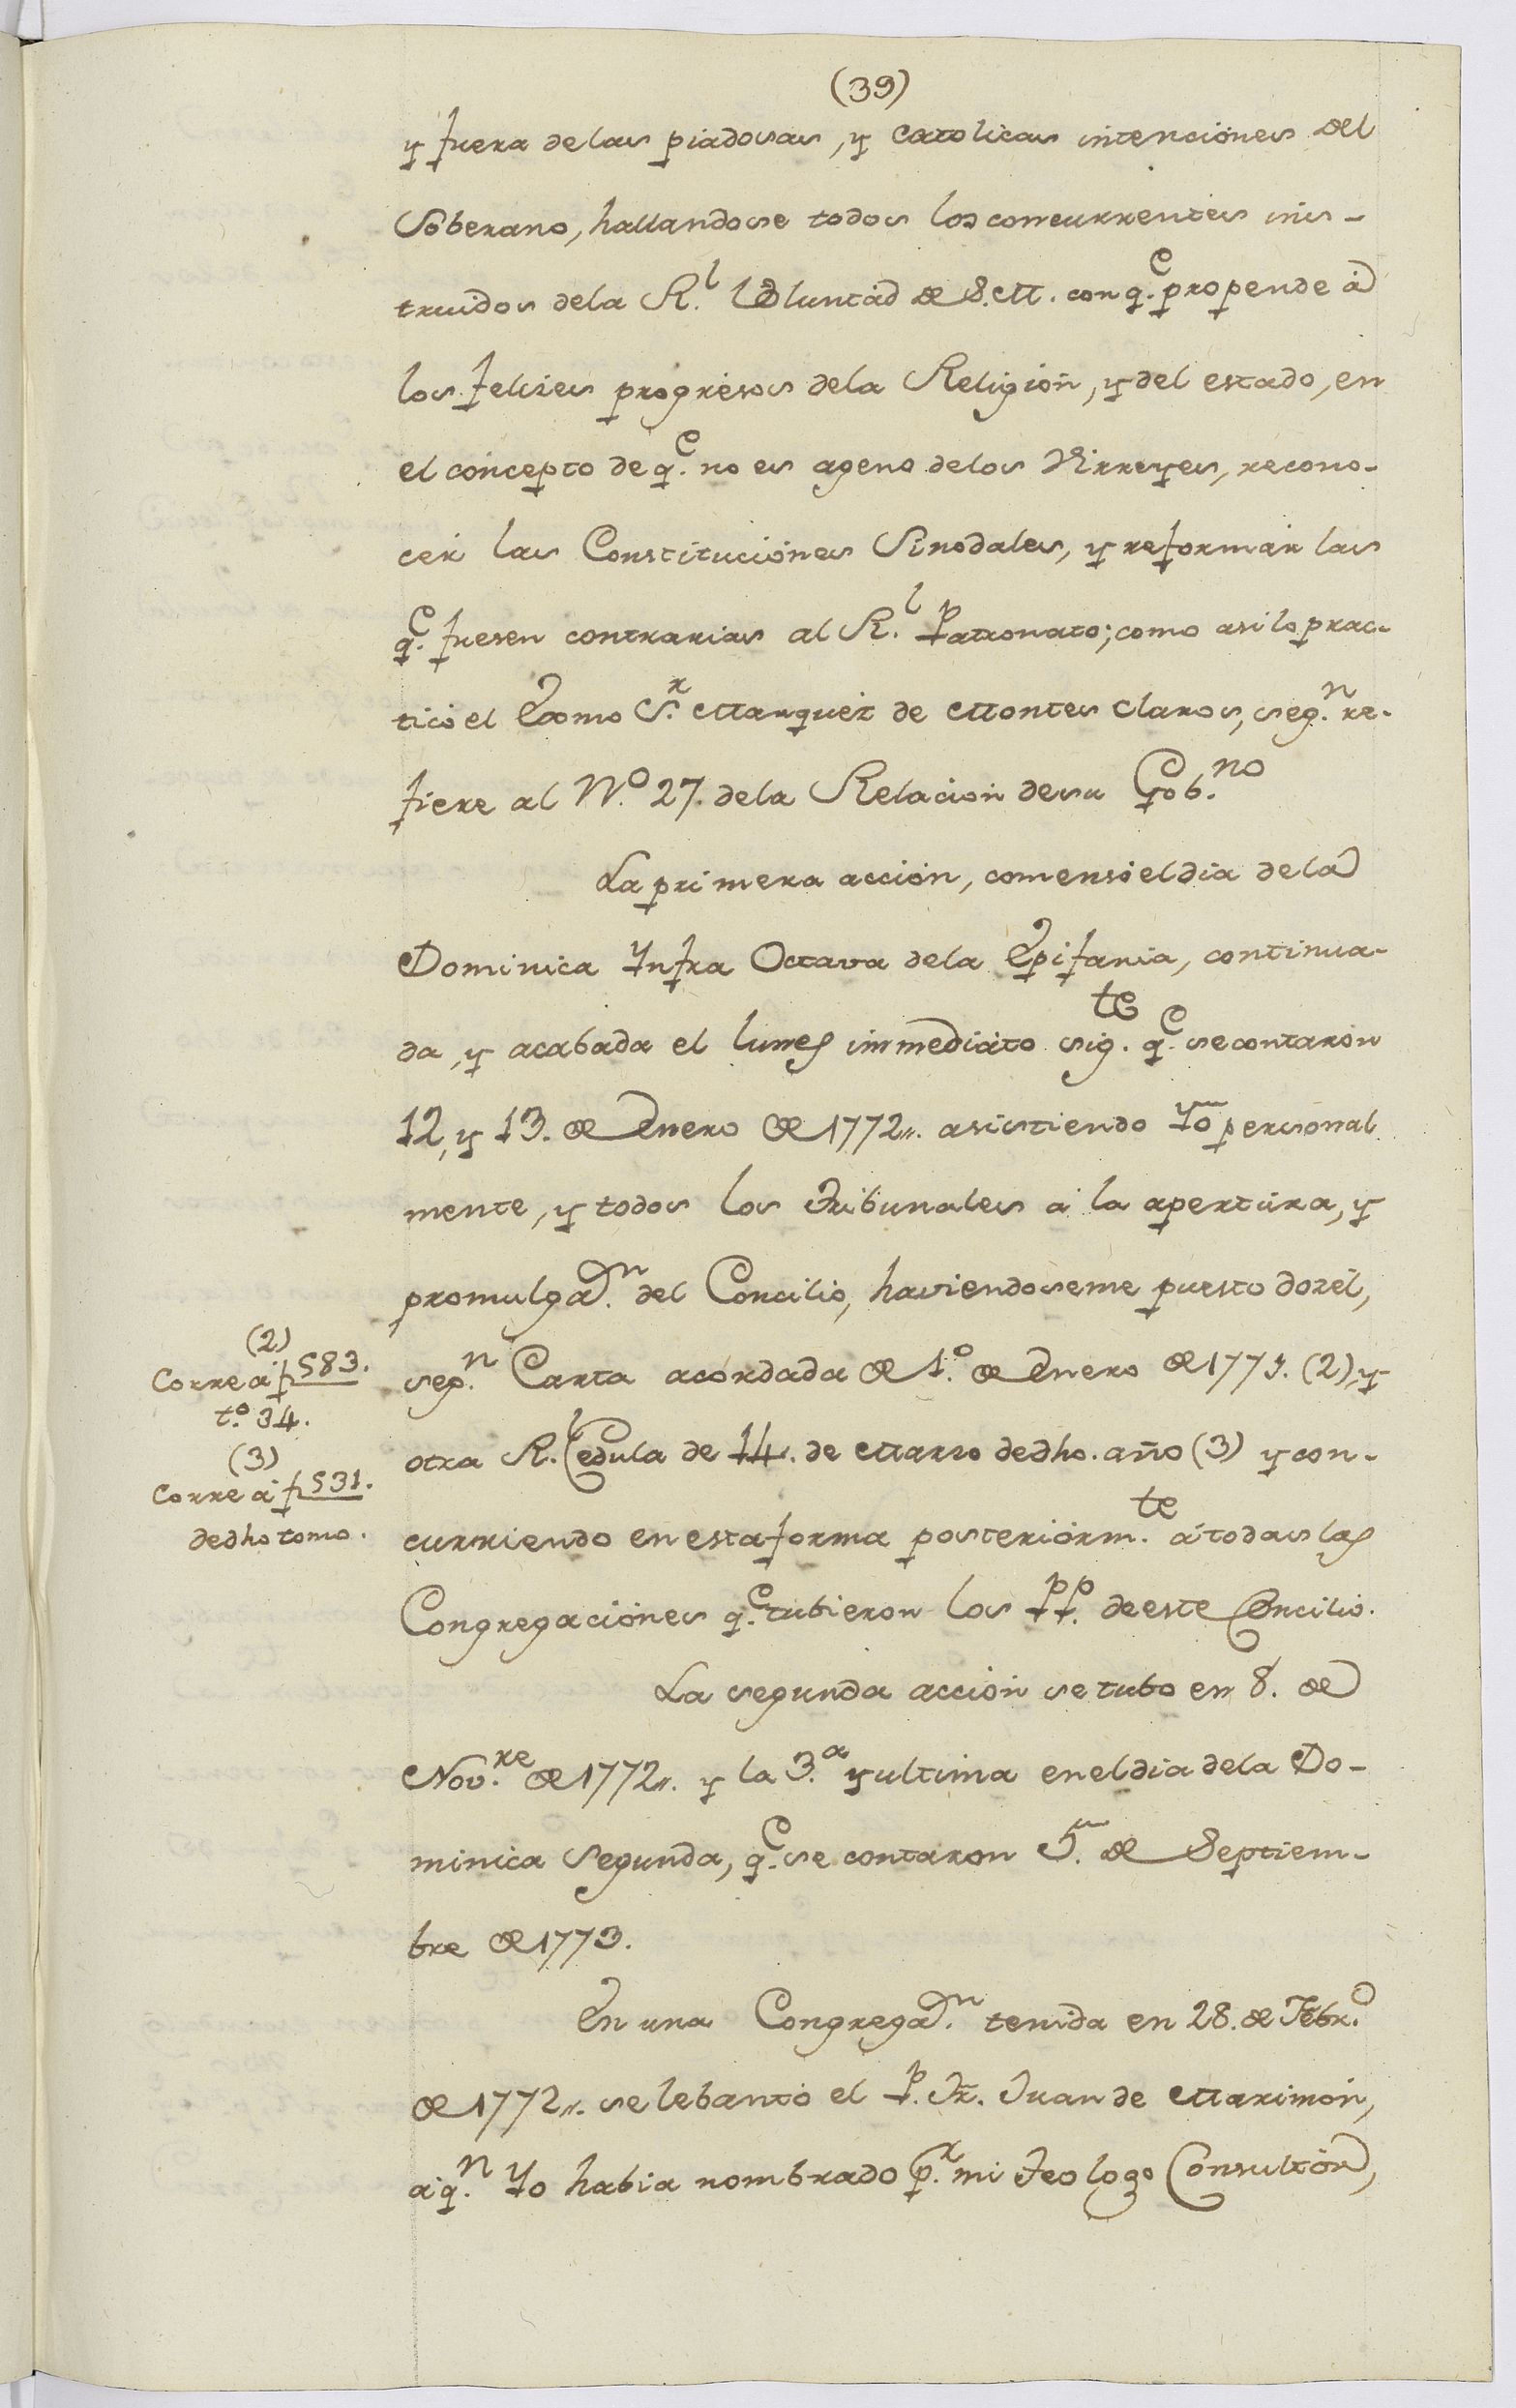 (39)
y fuera delas piadosas, y Catolicas intenciones del
Soberano, hallandose todos los concurrentes ins-
truidos dela R.l Voluntad de S.M. con q.e propende á
los felices progresos dela Religion, y del estado, en
el concepto de q.e no es ageno delos Virreyes, recono-
cer las Constituciones Sinodales, y reformar las
q.e fuesen contrarias al R.l Patronato; como asi lo prac-
ticó el Exmo S.r Marquez de Montes Claros, seg.n re-
fiere al N.o 27. dela Relacion desu Gob.no
La primera accion, comensó el dia dela
Dominica Ynfra Octava dela Epifania, continua-
da, y acabada el lunes immediato sig.te q.e se contaron
12, y 13. de Enero de 1772,,. asistiendo Yo personal
mente, y todos los Tribunales á la apertura, y
promulga.on del Concilio, haviendoseme puesto dozél,
(2)
Corre á f 583.
t.o 34.
(3)
Corre á f 531.
dedho tomo.
seg.n Carta acordada de 1.o de Enero de 1773. (2), y
otra R.l Cedula de 14. de Marzo dedho. año (3) y con-
curriendo en esta forma posteriorm.te á todas las
Congregaciones q.e tubieron los PP. deeste Concilio.
La segunda accion se tubo en 8. de
Nov.re de 1772,,. y la 3.a y ultima en el dia dela Do-
minica Segunda, q.e se contaron 5. de Septiem-
bre de 1773.
En una Congrega.on tenida en 28. de Febr.o
de 1772,,. se lebantó el P. Fr. Juan de Marimón,
á q.n Yo habia nombrado p.r mi Teologo Consultór,